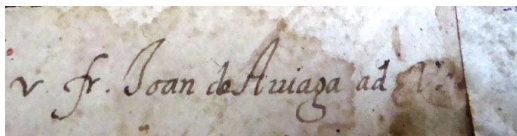 v fr. Joan de Auiaga ad